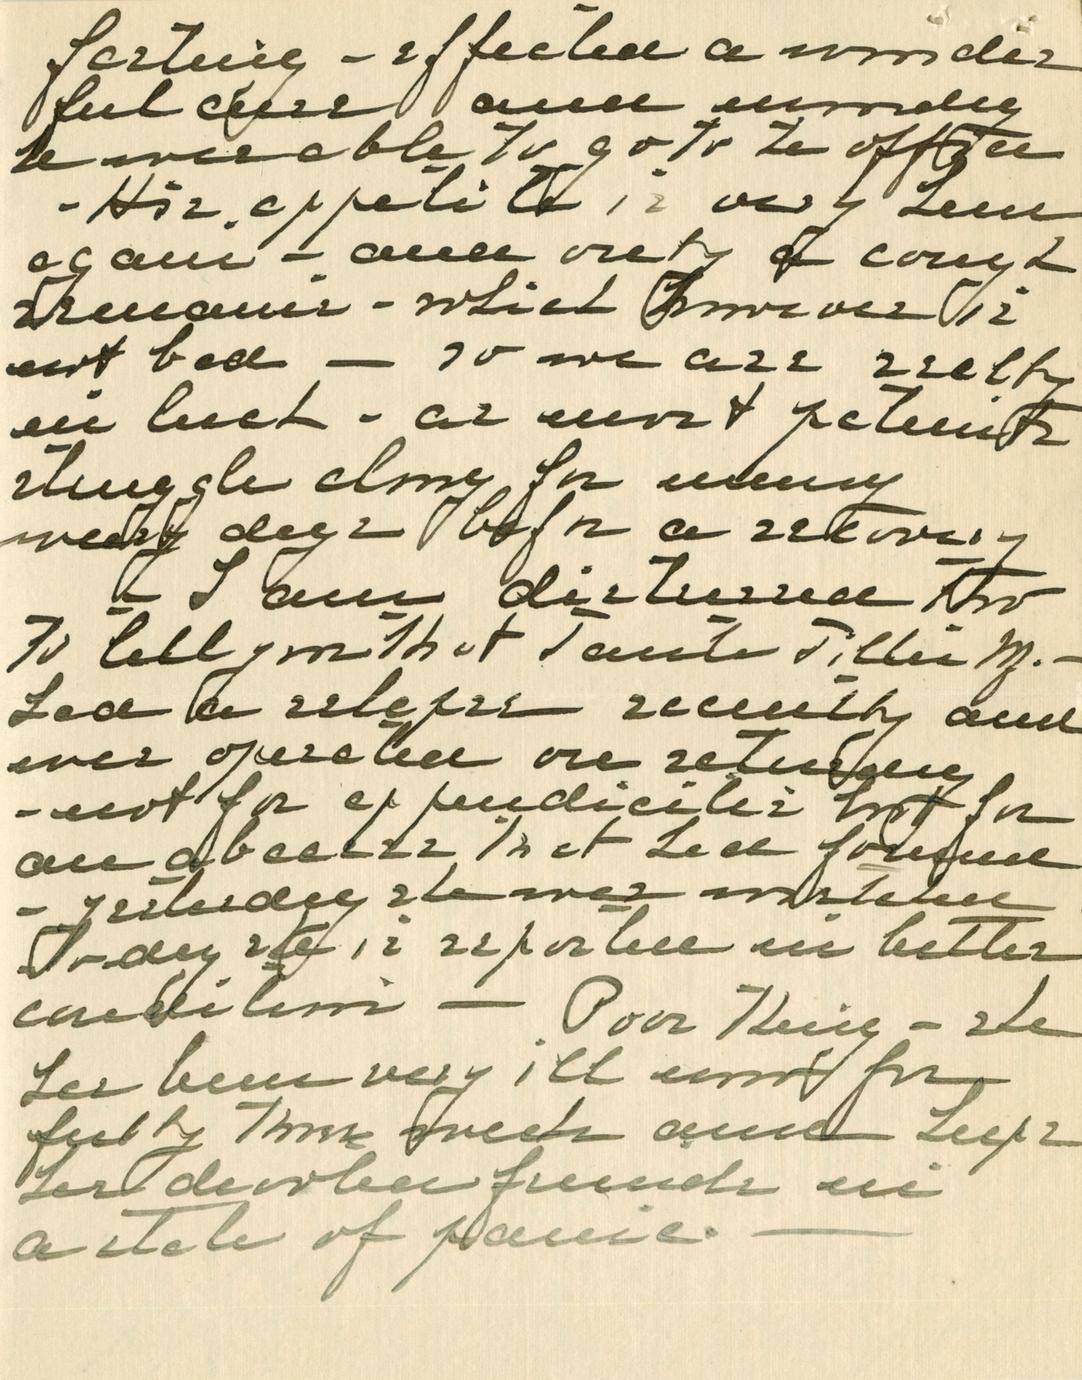 fasting - effected a wonder
ful cure and monday
he was able to go to the office
- His appetite is very keen
again - and only a cough
remains - which however is
not bad — so we are really
in luck - as most patients
struggle along for many
weary days before a recovery
- I am distressed too
to tell you that Tante Tillie M. -
had a relapse recently and
was operated on saturday
- not for appendicitis but for
an abscess that had formed
- yesterday she was
To-day she is reported in better
condition — Poor thing - she
has been very ill now for
fully three weeks and keeps
her devoted friends in
a state of panic. —